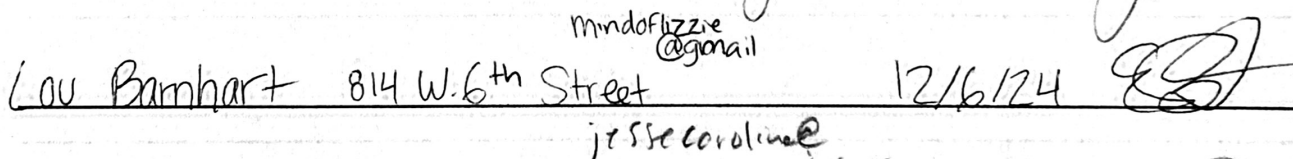 mindoflizzie
@gmail
Lou Barnhart 814 W. 6th Street 12/6/24
jessecaroline@